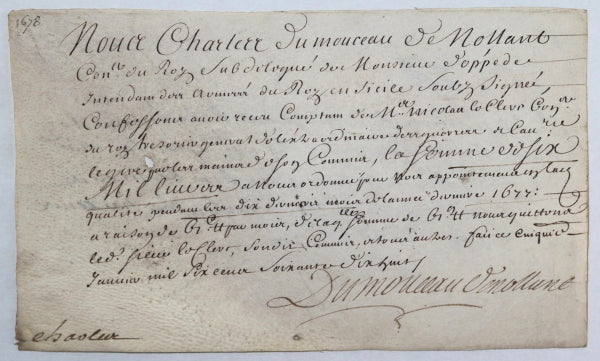 1678
Nous Charles Dumonceau de Nollant
Con.er du Roy Subdelegué de Monsieur d'oppede
Intendant des Armées du Roy en Sicile Soubz Signé,
Confessons avoir receu Comptant de M.e Nicolas le Clerc Con.er
du roy tresorier general de l'extraordinaire des guerres de Cau.rie
legere par les mains de son Commis, la Somme de Six
Mil livres a nous ordonnée pour nos appointemens en lad
qualité pendant les dix derniers mois de l'année derniere 1677:
a raison de par mois, de laq.lle Somme de nous quittons
led. Sieur le Clerc, Sondit Commis, et tous autres. fait ce cinquie
Januier mil Six cens soixante dix huit
Dumonceau denollant